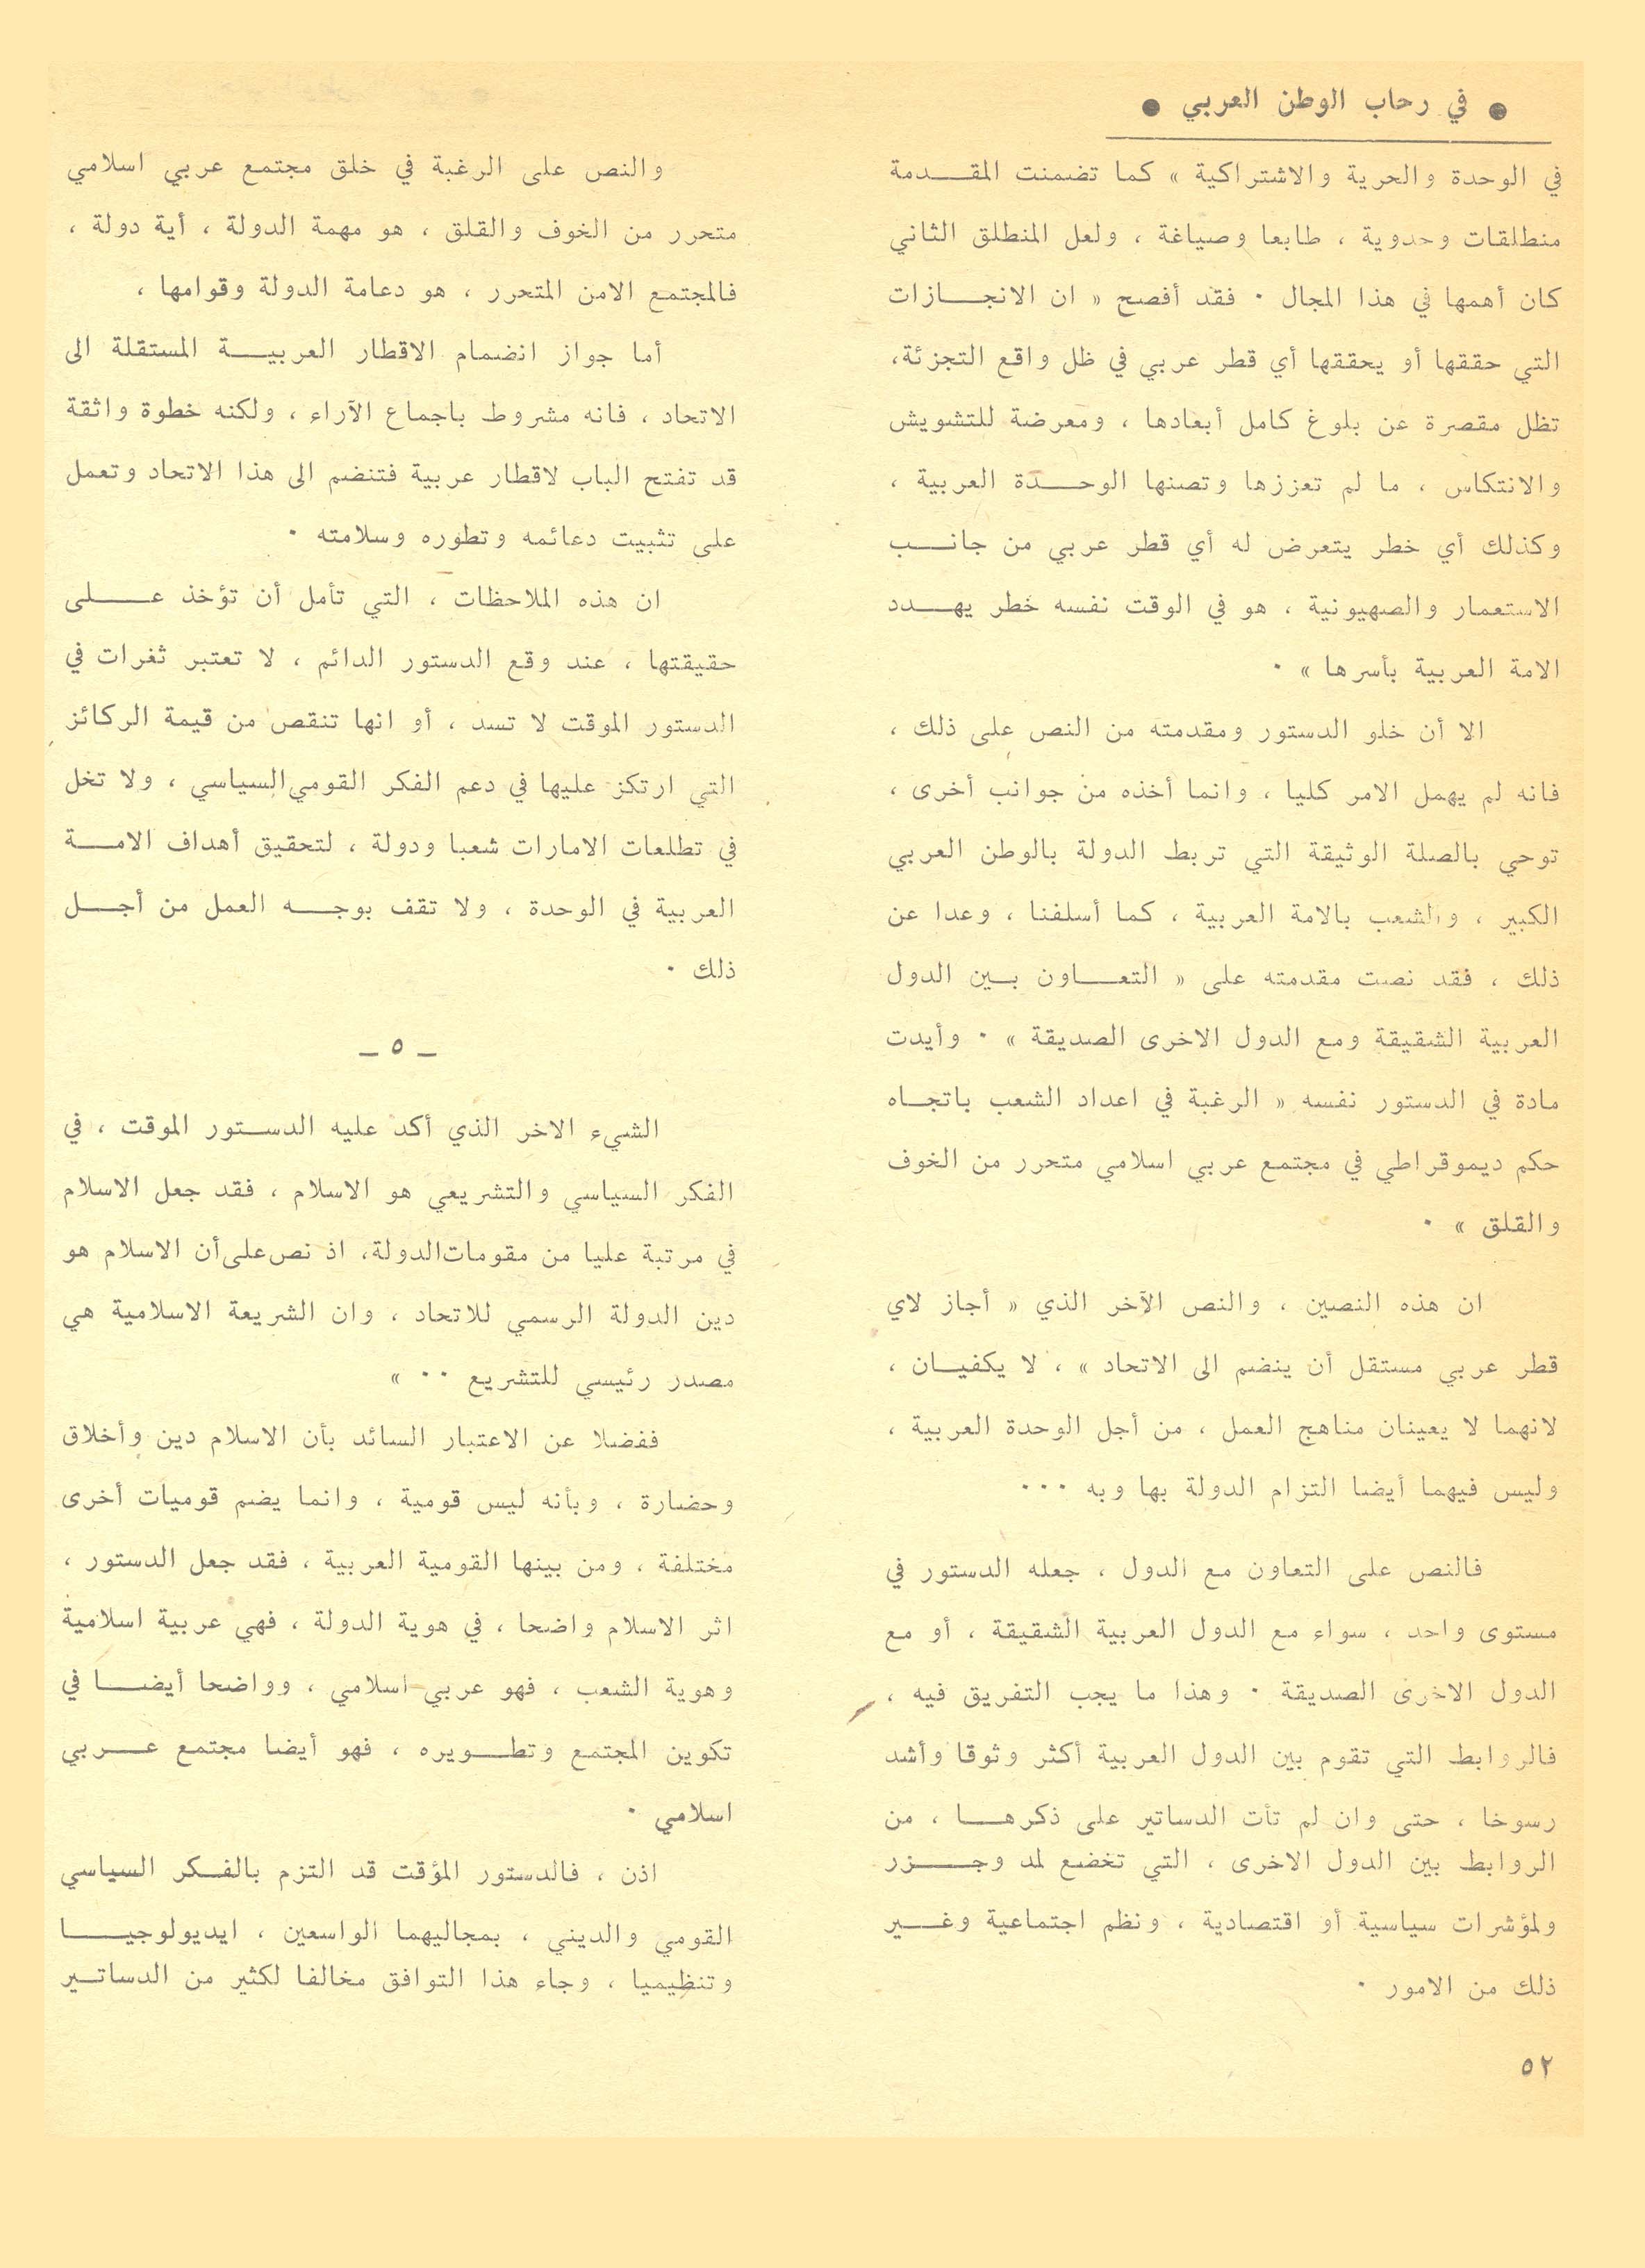 ● في رحاب الوطن العربي ●
في الوحدة والحرية والاشتراكية » كما تضمنت المقدمة
منطلقات وحدوية ، طابعا وصياغة ، ولعل المنطلق الثاني
كان أهمها في هذا المجال ٠ فقد أفصح « ان الانجازات
التي حققها أو يحققها أي قطر عربي في ظل واقع التجزئة،
تظل مقصرة عن بلوغ كامل أبعادها ، ومعرضة للتشويش
والانتكاس ، ما لم تعززها وتصنها الوحدة العربية ،
وكذلك أي خطر يتعرض له أي قطر عربي من جانب
الاستعمار والصهيونية ، هو في الوقت نفسه خطر يهدد
الامة العربية بأسرها » ٠
الا أن خلو الدستور ومقدمته من النص على ذلك ،
فانه لم يهمل الامر كليا ، وانما أخذه من جوانب أخرى ،
توحي بالصلة الوثيقة التي تربط الدولة بالوطن العربي
الكبير ، والشعب بالامة العربية ، كما أسلفنا ، وعدا عن
ذلك ، فقد نصت مقدمته على « التعاون بين الدول
العربية الشقيقة ومع الدول الاخرى الصديقة » ٠ وأيدت
مادة في الدستور نفسه « الرغبة في اعداد الشعب باتجاه
حكم ديموقراطي في مجتمع عربي اسلامي متحرر من الخوف
والقلق » ٠
ان هذه النصين ، والنص الآخر الذي « أجاز لاي
قطر عربي مستقل أن ينضم الى الاتحاد » ، لا يكفيان ،
لانهما لا يعينان مناهج العمل ، من أجل الوحدة العربية ،
وليس فيهما أيضا التزام الدولة بها وبه ٠٠٠
فالنص على التعاون مع الدول ، جعله الدستور في
مستوى واحد ، سواء مع الدول العربية الشقيقة ، أو مع
الدول الاخرى الصديقة ٠ وهذا ما يجب التفريق فيه ،
فالروابط التي تقوم بين الدول العربية أكثر وثوقا وأشد
رسوخا ، حتى وان لم تأت الدساتير على ذكرها ، من
الروابط بين الدول الاخرى ، التي تخضع لمد وجزر
ولمؤشرات سياسية أو اقتصادية ، ونظم اجتماعية وغير
ذلك من الامور ٠
والنص على الرغبة في خلق مجتمع عربي اسلامي
متحرر من الخوف والقلق ، هو مهمة الدولة ، أية دولة ،
فالمجتمع الامن المتحرر ، هو دعامة الدولة وقوامها ،
أما جواز انضمام الاقطار العربية المستقلة الى
الاتحاد ، فانه مشروط باجماع الآراء ، ولكنه خطوة واثقة
قد تفتح الباب لاقطار عربية فتنضم الى هذا الاتحاد وتعمل
على تثبيت دعائمه وتطوره وسلامته ٠
ان هذه الملاحظات ، التي تأمل أن تؤخذ على
حقيقتها ، عند وقع الدستور الدائم ، لا تعتبر ثغرات في
الدستور الموقت لا تسد ، أو انها تنقص من قيمة الركائز
التي ارتكز عليها في دعم الفكر القومي السياسي ، ولا تخل
في تطلعات الامارات شعبا ودولة ، لتحقيق أهداف الامة
العربية في الوحدة ، ولا تقف بوجه العمل من أجل
ذلك ٠
– ٥ –
الشيء الاخر الذي أكد عليه الدستور الموقت ، في
الفكر السياسي والتشريعي هو الاسلام ، فقد جعل الاسلام
في مرتبة عليا من مقومات الدولة، اذ نص على أن الاسلام هو
دين الدولة الرسمي للاتحاد ، وان الشريعة الاسلامية هي
مصدر رئيسي للتشريع ٠٠ »
ففضلا عن الاعتبار السائد بأن الاسلام دين وأخلاق
وحضارة ، وبأنه ليس قومية ، وانما يضم قوميات أخرى
مختلفة ، ومن بينها القومية العربية ، فقد جعل الدستور ،
اثر الاسلام واضحا ، في هوية الدولة ، فهي عربية اسلامية
وهوية الشعب ، فهو عربي اسلامي ، وواضحا أيضا في
تكوين المجتمع وتطويره ، فهو أيضا مجتمع عربي
اسلامي ٠
اذن ، فالدستور المؤقت قد التزم بالفكر السياسي
القومي والديني ، بمجاليهما الواسعين ، ايديولوجيا
وتنظيميا ، وجاء هذا التوافق مخالفا لكثير من الدساتير
٥٢